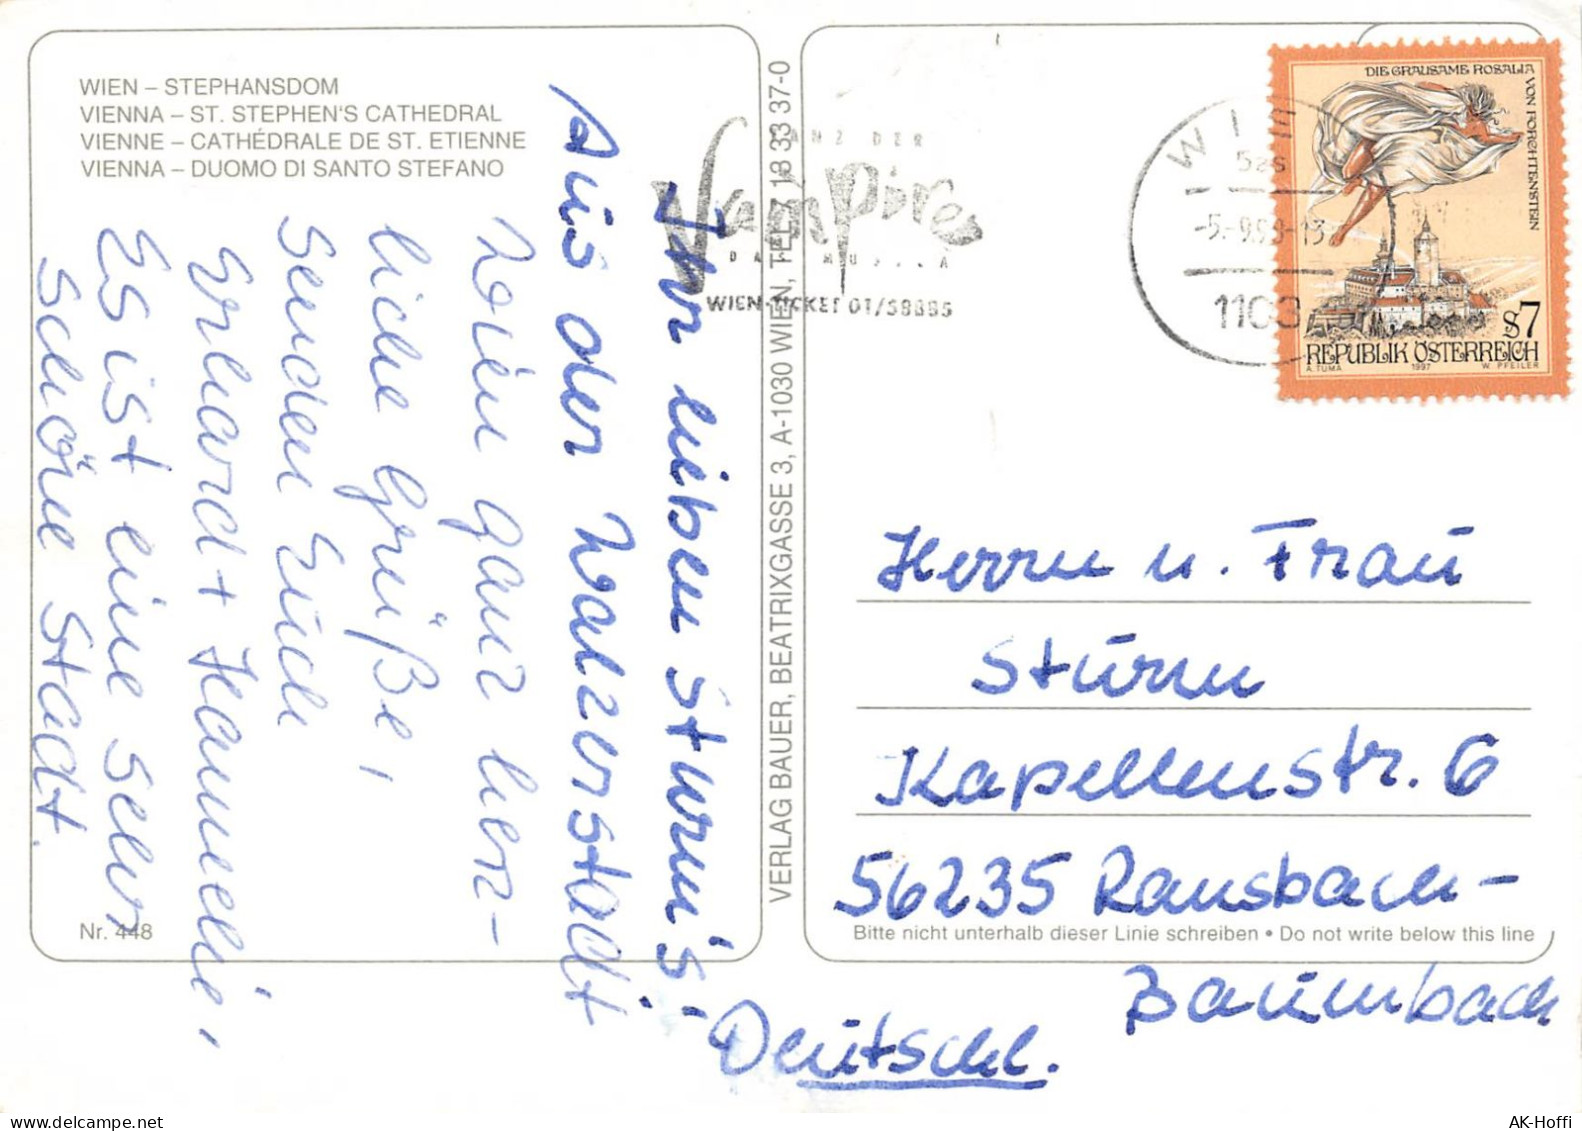 WIEN – STEPHANSDOM
VIENNA – ST. STEPHEN'S CATHEDRAL
VIENNE – CATHÉDRALE DE ST. ETIENNE
VIENNA – DUOMO DI SANTO STEFANO
Ihr lieben Sturm's!
Aus der Walzerstadt
Wien ganz herz-
liche Grüße,
senden Euch
Gerhard + Hannele,
Es ist eine sehr
schöne Stadt.
Nr. 448
VERLAG BAUER, BEATRIXGASSE 3, A-1030 WIEN, TEL. 713 33 37-0
TANZ DER
Vampire
DAS MUSICAL
WIEN-TICKET 01/58885
WIEN
-5.-9.98-13
1103
DIE GRAUSAME ROSALIA
VON FORCHTENSTEIN
S7
REPUBLIK ÖSTERREICH
A. TUMA 1997 W. PFEILER
Herrn u. Frau
Sturm
Kapellenstr. 6
56235 Ransbach-
Bitte nicht unterhalb dieser Linie schreiben • Do not write below this line
Baumbach
Deutschl.
AK-Hoffi